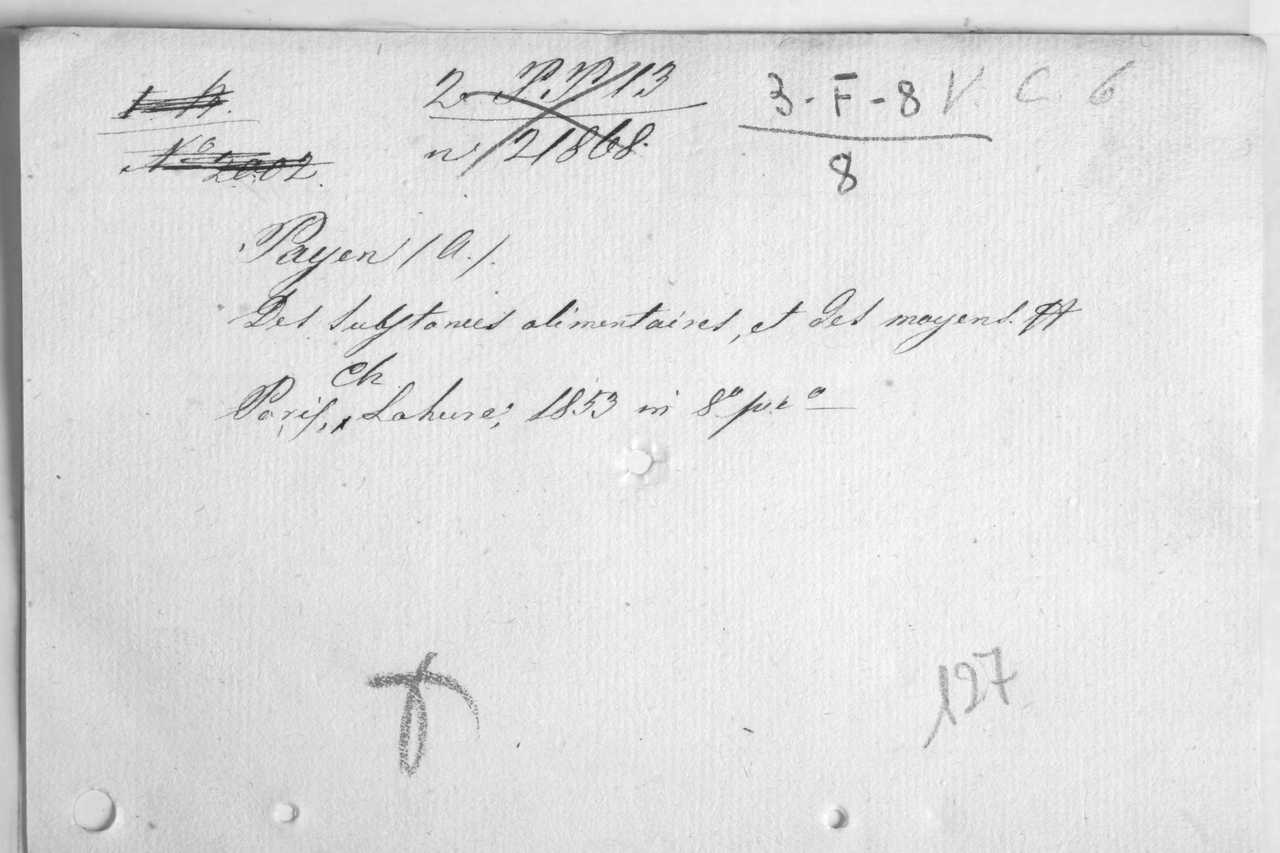 2a P.P/13 3-F-8 V. C. 6
Nº 2002. nº 21868. 8
Payen (A.).
Des substances alimentaires, et des moyens. &
Ch
Paris, Lahure, 1853 in 8º p.e º
127